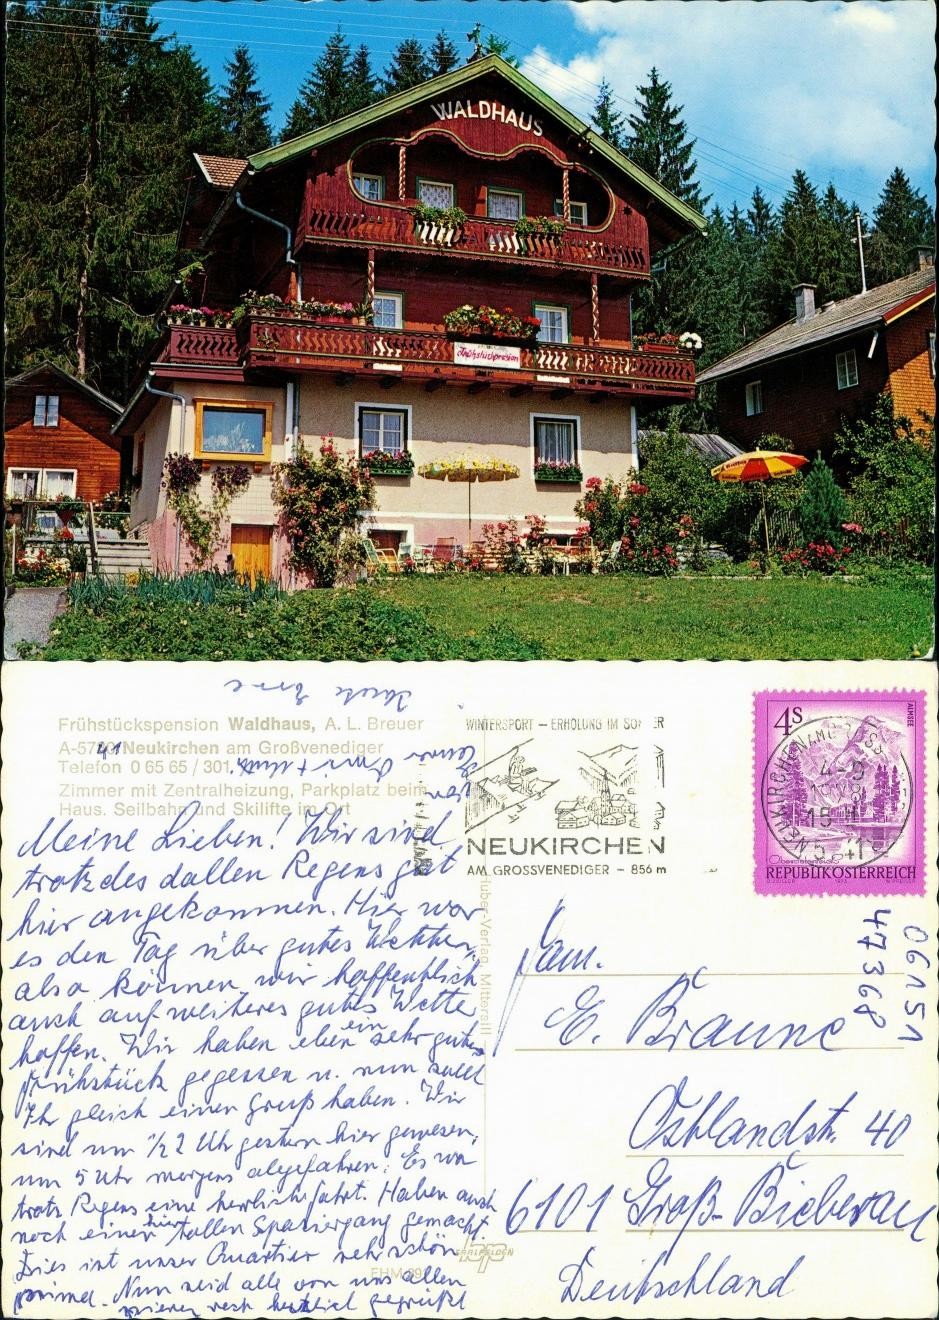 WALDHAUS
Frühstückspension
Frühstückspension Waldhaus, A. L. Breuer
Neukirchen am Großvenediger
Telefon 0 65 65 / 301
Zimmer mit Zentralheizung, Parkplatz beim
Haus. Seilbahn und Skilifte im Ort
Meine Lieben! Wir sind
trotz des dallen Regens gut
hier angekommen. Hier war
es den Tag über gutes Wetter,
also können wir hoffentlich
auch auf weiteres gutes Wetter
hoffen. Wir haben eben ein sehr gutes
Frühstück gegessen u. nun sollt
Ihr gleich einen Gruß haben. Wir
sind um 1/2 2 Uhr gestern hier gewesen,
um 5 Uhr morgens abgefahren. Es war
trotz Regens eine herrliche Fahrt. Haben auch
noch einen tollen Spaziergang gemacht.
Dies ist unser Quartier sehr schön
prima. Nun seid alle von uns allen
recht herzlich gegrüßt
WINTERSPORT – ERHOLUNG IM SOMMER
NEUKIRCHEN
AM GROSSVENEDIGER – 856 m
4S
ALMSEE
Oberösterreich
REPUBLIK ÖSTERREICH
5741
Huber-Verlag, Mittersill
06151
47368
Fam.
E. Braune
Ostlandstr. 40
6101 Groß-Bieberau
Deutschland